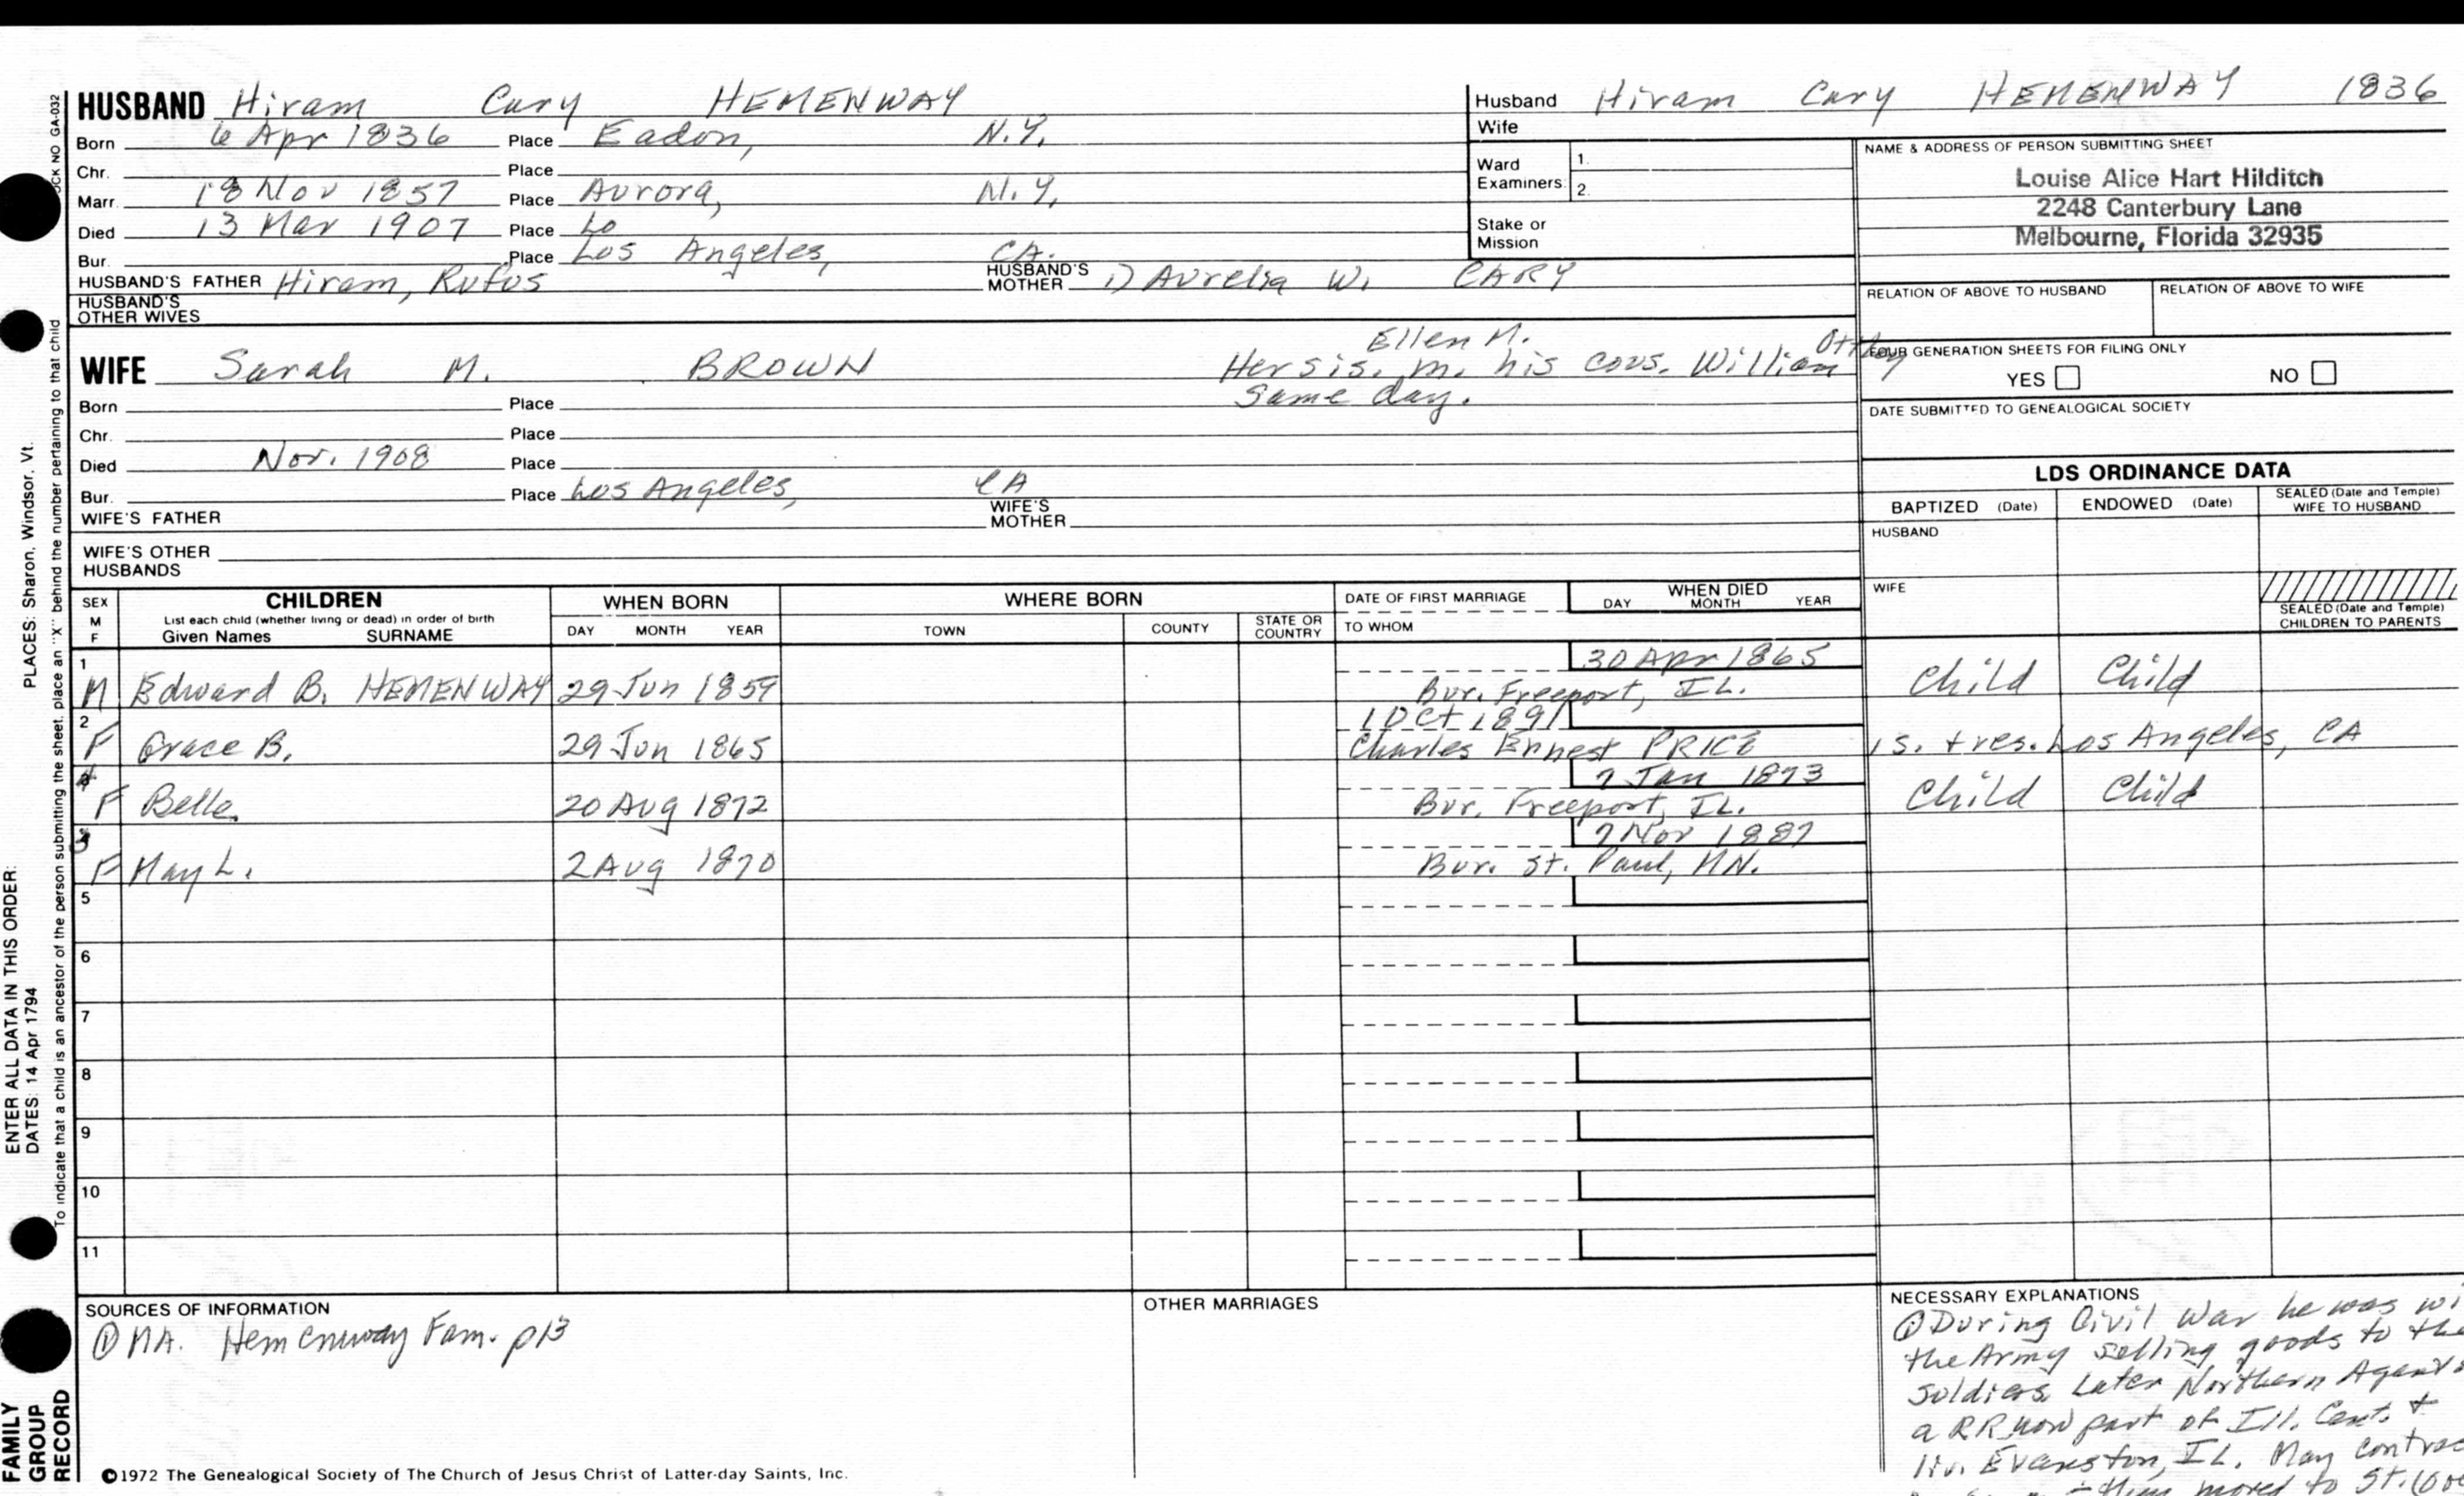 HUSBAND Hiram Cary HEMENWAY
Born 6 Apr 1836 Place Eadon, N.Y.
Chr. Place
Marr. 18 Nov 1857 Place Aurora, N.Y.
Died 13 Mar 1907 Place Lo
Bur. Place Los Angeles, CA.
HUSBAND'S FATHER Hiram, Rufus HUSBAND'S MOTHER 1) Aurelia W. CARY
HUSBAND'S OTHER WIVES
Husband Hiram Cary HEMENWAY 1836
Wife
Ward Examiners: 1.
2.
Stake or Mission
NAME & ADDRESS OF PERSON SUBMITTING SHEET
Louise Alice Hart Hilditch
2248 Canterbury Lane
Melbourne, Florida 32935
RELATION OF ABOVE TO HUSBAND RELATION OF ABOVE TO WIFE
FOUR GENERATION SHEETS FOR FILING ONLY
YES NO
DATE SUBMITTED TO GENEALOGICAL SOCIETY
WIFE Sarah M. BROWN
Ellen M.
Her sis. m. his cous. William
Same day.
Born Place
Chr. Place
Died Nov. 1908 Place
Bur. Place Los Angeles, CA
WIFE'S FATHER WIFE'S MOTHER
WIFE'S OTHER HUSBANDS
LDS ORDINANCE DATA
BAPTIZED (Date) ENDOWED (Date) SEALED (Date and Temple) WIFE TO HUSBAND
HUSBAND
WIFE
SEALED (Date and Temple) CHILDREN TO PARENTS
SEX M F
CHILDREN
List each child (whether living or dead) in order of birth
Given Names SURNAME
WHEN BORN
DAY MONTH YEAR
WHERE BORN
TOWN COUNTY STATE OR COUNTRY
DATE OF FIRST MARRIAGE
TO WHOM
WHEN DIED
DAY MONTH YEAR
1 30 Apr 1865
M Edward B. HEMENWAY 29 Jun 1859 Bur. Freeport, IL. Child Child
2 1 Oct 1891
F Grace B. 29 Jun 1865 Charles Ernest PRICE is. + res. Los Angeles, CA
4 7 Jan 1873
F Belle. 20 Aug 1872 Bur. Freeport, IL. Child Child
3 7 Nov 1887
F May L. 2 Aug 1870 Bur. St. Paul, MN.
5
6
7
8
9
10
11
SOURCES OF INFORMATION
① MA. Hemenway Fam. p13
OTHER MARRIAGES
NECESSARY EXPLANATIONS
① During Civil War he was wi
the Army selling goods to the
soldiers. Later Northern Agent
a RR now part of Ill. Cent. +
liv. Evanston, IL. May contrac
then moved to St.
©1972 The Genealogical Society of The Church of Jesus Christ of Latter-day Saints, Inc.
FAMILY GROUP RECORD
ENTER ALL DATA IN THIS ORDER:
DATES: 14 Apr 1794
PLACES: Sharon, Windsor, Vt.
To indicate that a child is an ancestor of the person submitting the sheet, place an "X" behind the number pertaining to that child
CK NO GA-032